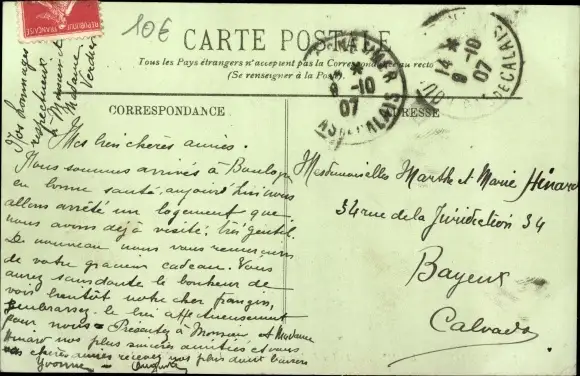 10€
CARTE POSTALE
Tous les Pays étrangers n'acceptent pas la Correspondance au recto
(Se renseigner à la Poste)
14 * 9 -10 07
* 9 -10 07 PAS DE CALAIS
CORRESPONDANCE
ADRESSE
Nos hommages
respectueux
à Monsieur et
Madame
Verdier
Mes bien chères amies.
Nous sommes arrivés à Boulogne
en bonne santé, aujourd'hui nous
allons arrêté un logement que
nous avons déjà visité, très gentil.
De nouveau nous vous remercions
de votre gracieux cadeau. Vous
aurez sans doute le bonheur de
voir bientôt notre cher frangin,
embrassez le lui affectueusement
pour nous - Présentez à Monsieur et Madame
Hinard nos plus sincères amitiés et vous
nos chères amies recevez nos plus doux baisers
Yvonne -
Mesdemoiselles Marthe et Marie Hinard
34 rue de la Juridiction 34
Bayeux
Calvados